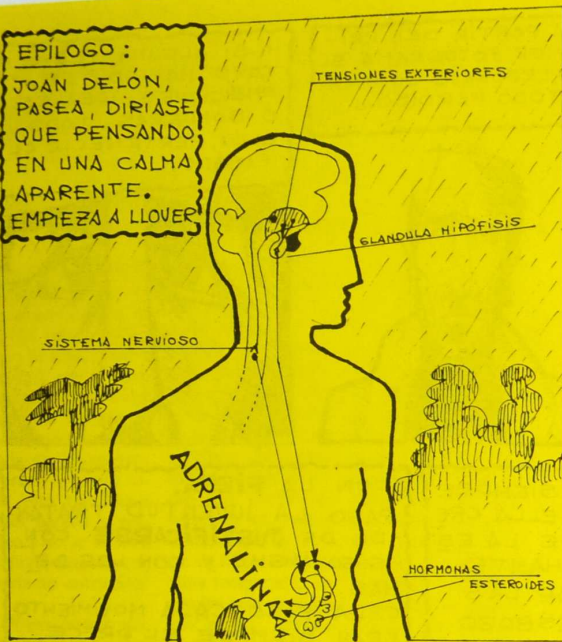 EPÍLOGO:
JOAN DELÓN,
PASEA, DIRÍASE
QUE PENSANDO
EN UNA CALMA
APARENTE.
EMPIEZA A LLOVER
TENSIONES EXTERIORES
GLANDULA HIPÓFISIS
SISTEMA NERVIOSO
ADRENALINAAAA
HORMONAS
ESTEROIDES